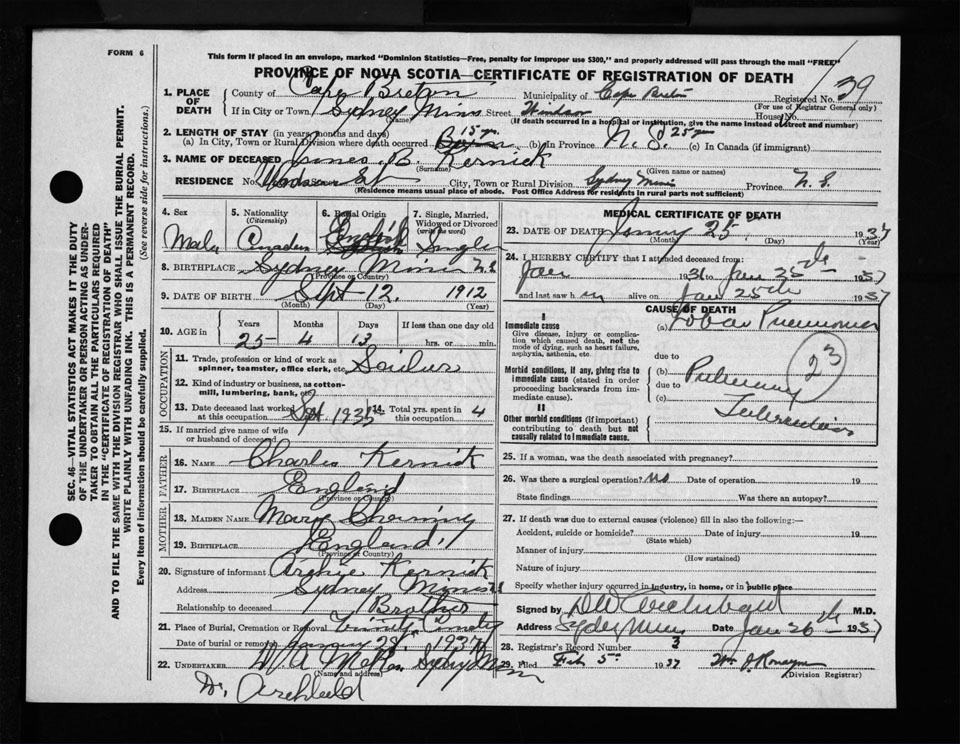 FORM 6
This form if placed in an envelope, marked "Dominion Statistics—Free, penalty for improper use $300," and properly addressed will pass through the mail "FREE"
PROVINCE OF NOVA SCOTIA—CERTIFICATE OF REGISTRATION OF DEATH
SEC. 46—VITAL STATISTICS ACT MAKES IT THE DUTY
OF THE UNDERTAKER OR PERSON ACTING AS UNDER-
TAKER TO OBTAIN ALL THE PARTICULARS REQUIRED
IN THE "CERTIFICATE OF REGISTRATION OF DEATH"
AND TO FILE THE SAME WITH THE DIVISION REGISTRAR WHO SHALL ISSUE THE BURIAL PERMIT.
WRITE PLAINLY WITH UNFADING INK. THIS IS A PERMANENT RECORD.
Every item of information should be carefully supplied. (See reverse side for instructions.)
1. PLACE OF DEATH
County of Cape Breton Municipality of Cape Breton Registered No. 39
(For use of Registrar General only)
If in City or Town Sydney Mines Street House No.
(Name)
(If death occurred in a hospital or institution, give the name instead of street and number)
2. LENGTH OF STAY (in years, months and days)
(a) In City, Town or Rural Division where death occurred 15 yrs. (b) In Province N.S. 25 yrs (c) In Canada (if immigrant)
3. NAME OF DECEASED James B. Kernick
(Surname) (Given name or names)
RESIDENCE No. St City, Town or Rural Division Sydney Mines Province N.S.
(Residence means usual place of abode. Post Office Address for residents in rural parts not sufficient)
4. Sex Male
5. Nationality (Citizenship) Canadian
6. Racial Origin English
7. Single, Married, Widowed or Divorced (write the word) Single
8. BIRTHPLACE Sydney Mines N.S.
(Province or Country)
9. DATE OF BIRTH Sept 12. 1912
(Month) (Day) (Year)
10. AGE in Years Months Days If less than one day
25 4 13 hrs. or min.
OCCUPATION
11. Trade, profession or kind of work as spinner, teamster, office clerk, etc. Sailor
12. Kind of industry or business, as cotton-mill, lumbering, bank, etc.
13. Date deceased last worked at this occupation Sept 1935 14. Total yrs. spent in this occupation 4
15. If married give name of wife or husband of deceased
FATHER
16. NAME Charles Kernick
17. BIRTHPLACE England
(Province or Country)
MOTHER
18. MAIDEN NAME Mary
19. BIRTHPLACE England
(Province or Country)
20. Signature of informant Archie Kernick
Address Sydney Mines N.S
Relationship to deceased Brother
21. Place of Burial, Cremation or Removal Trinity Cemetery
Date of burial or removal January 28, 1937
22. UNDERTAKER Sydney Mines
(Name and address)
Dr. Archibald
MEDICAL CERTIFICATE OF DEATH
23. DATE OF DEATH January 25. 1937
(Month) (Day) (Year)
24. I HEREBY CERTIFY that I attended deceased from:
1936 to Jan 25th 1937
and last saw him alive on Jan 25th 1937
CAUSE OF DEATH
I
Immediate cause
Give disease, injury or complication which caused death, not the mode of dying, such as heart failure, asphyxia, asthenia, etc.
(a) Lobar Pneumonia
due to
Morbid conditions, if any, giving rise to immediate cause (stated in order proceeding backwards from immediate cause).
(b) Pulmonary
due to
(c) Tuberculosis
23
II
Other morbid conditions (if important) contributing to death but not causally related to immediate cause.
25. If a woman, was the death associated with pregnancy?
26. Was there a surgical operation? No Date of operation 19
State findings Was there an autopsy?
27. If death was due to external causes (violence) fill in also the following:—
Accident, suicide or homicide? Date of injury 19
(State which)
Manner of injury
(How sustained)
Nature of injury
Specify whether injury occurred in industry, in home, or in public place
Signed by D W Archibald M.D.
Address Sydney Mines Date Jan 26th 1937
28. Registrar's Record Number 3
29. Filed Feb 5th 1937
(Division Registrar)